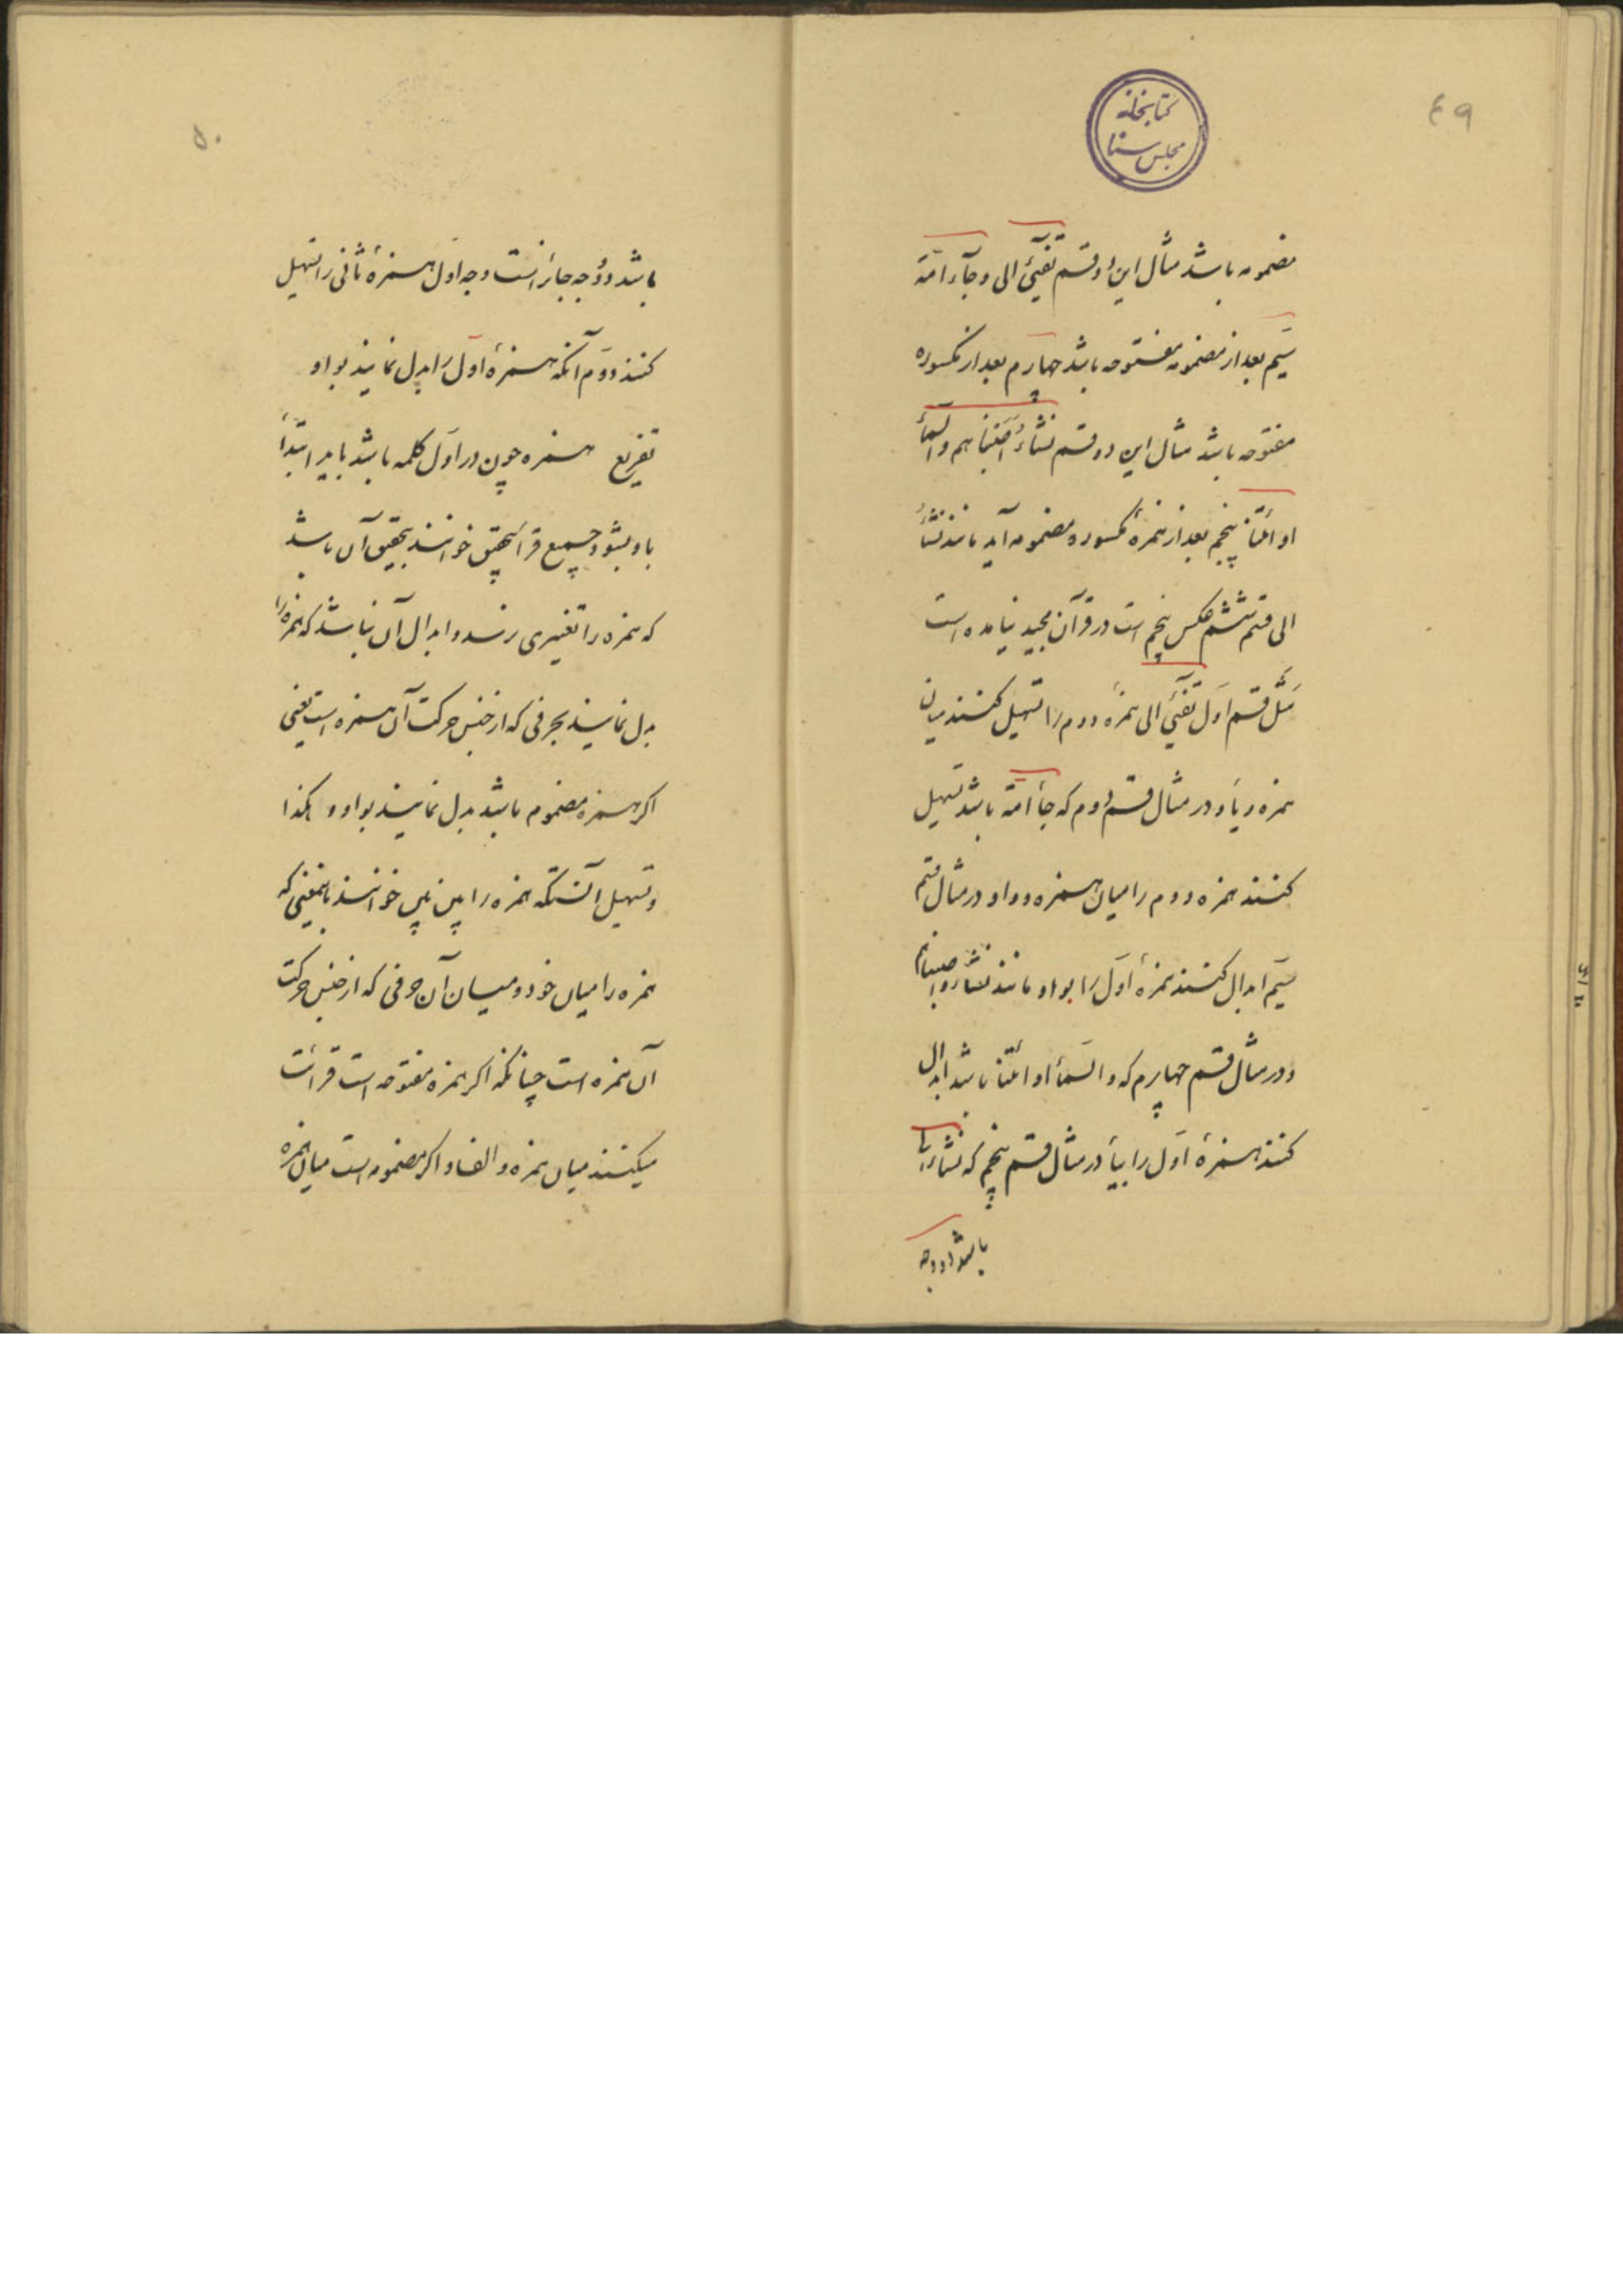 ٤٩
کتابخانه
مجلس سنا
مضمومه باشد مثال این دو قسم تفیئ الی و جآء امة
سیم بعد از مضمومه مفتوحه باشد چهارم بعد از مکسوره
مفتوحه باشد مثال این دو قسم نشاءُ اَصَبناهم و السمآء
او ائتنا پنجم بعد از همزهٔ مکسوره مضمومه آید مانند نشاءُ
الی قسم ششم عکس پنجم است در قرآن مجید نیامده است
مَثَل قسم اوّل تفیَی الی همزهٔ دوم را تسهیل کنند میان
همزه و یأ و در مثال قسم دوم که جأ امة باشد تسهیل
کنند همزه دوم را میان همزه و واو در مثال قسم
سیَم ابدال کنند همزهٔ اوَل را بواو مانند نشاء و اصبناهم
و در مثال قسم چهارم که و السَمأ او ائتنا باشد ابدال
کنند همزهٔ اوَل را بیأ در مثال قسم پنجم که نشاء الی
باشد دو وجه
٥٠
باشد دو وُجه جائز است وجه اول همزهٔ ثانی را تسهیل
کنند دوَم آنکه همزهٔ اوَل را بدل نمایند بواو
تفریع همزه چون در اوَل کلمه باشد باید ابتدأ
باو بشود و جمیع قرأ بتحقیق خوانند تحقیق آن باشد
که همزه را تغییری نرسد و ابدال آن نباشد که همزه را
بدل نمایند بحرفی که از جنس حرکت آن همزه است یعنی
اگر همزه مضموم باشد بدل نمایند بواو و هکذا
و تسهیل آنستکه همزه را بین بین خوانند باینمعنی که
همزه را میان خود و میان آن حرفی که از جنس حرکت
آن همزه است چنانکه اگر همزه مفتوحه است قرأئت
میکنند میان همزه و الف و اگر مضمومه است میان همزه